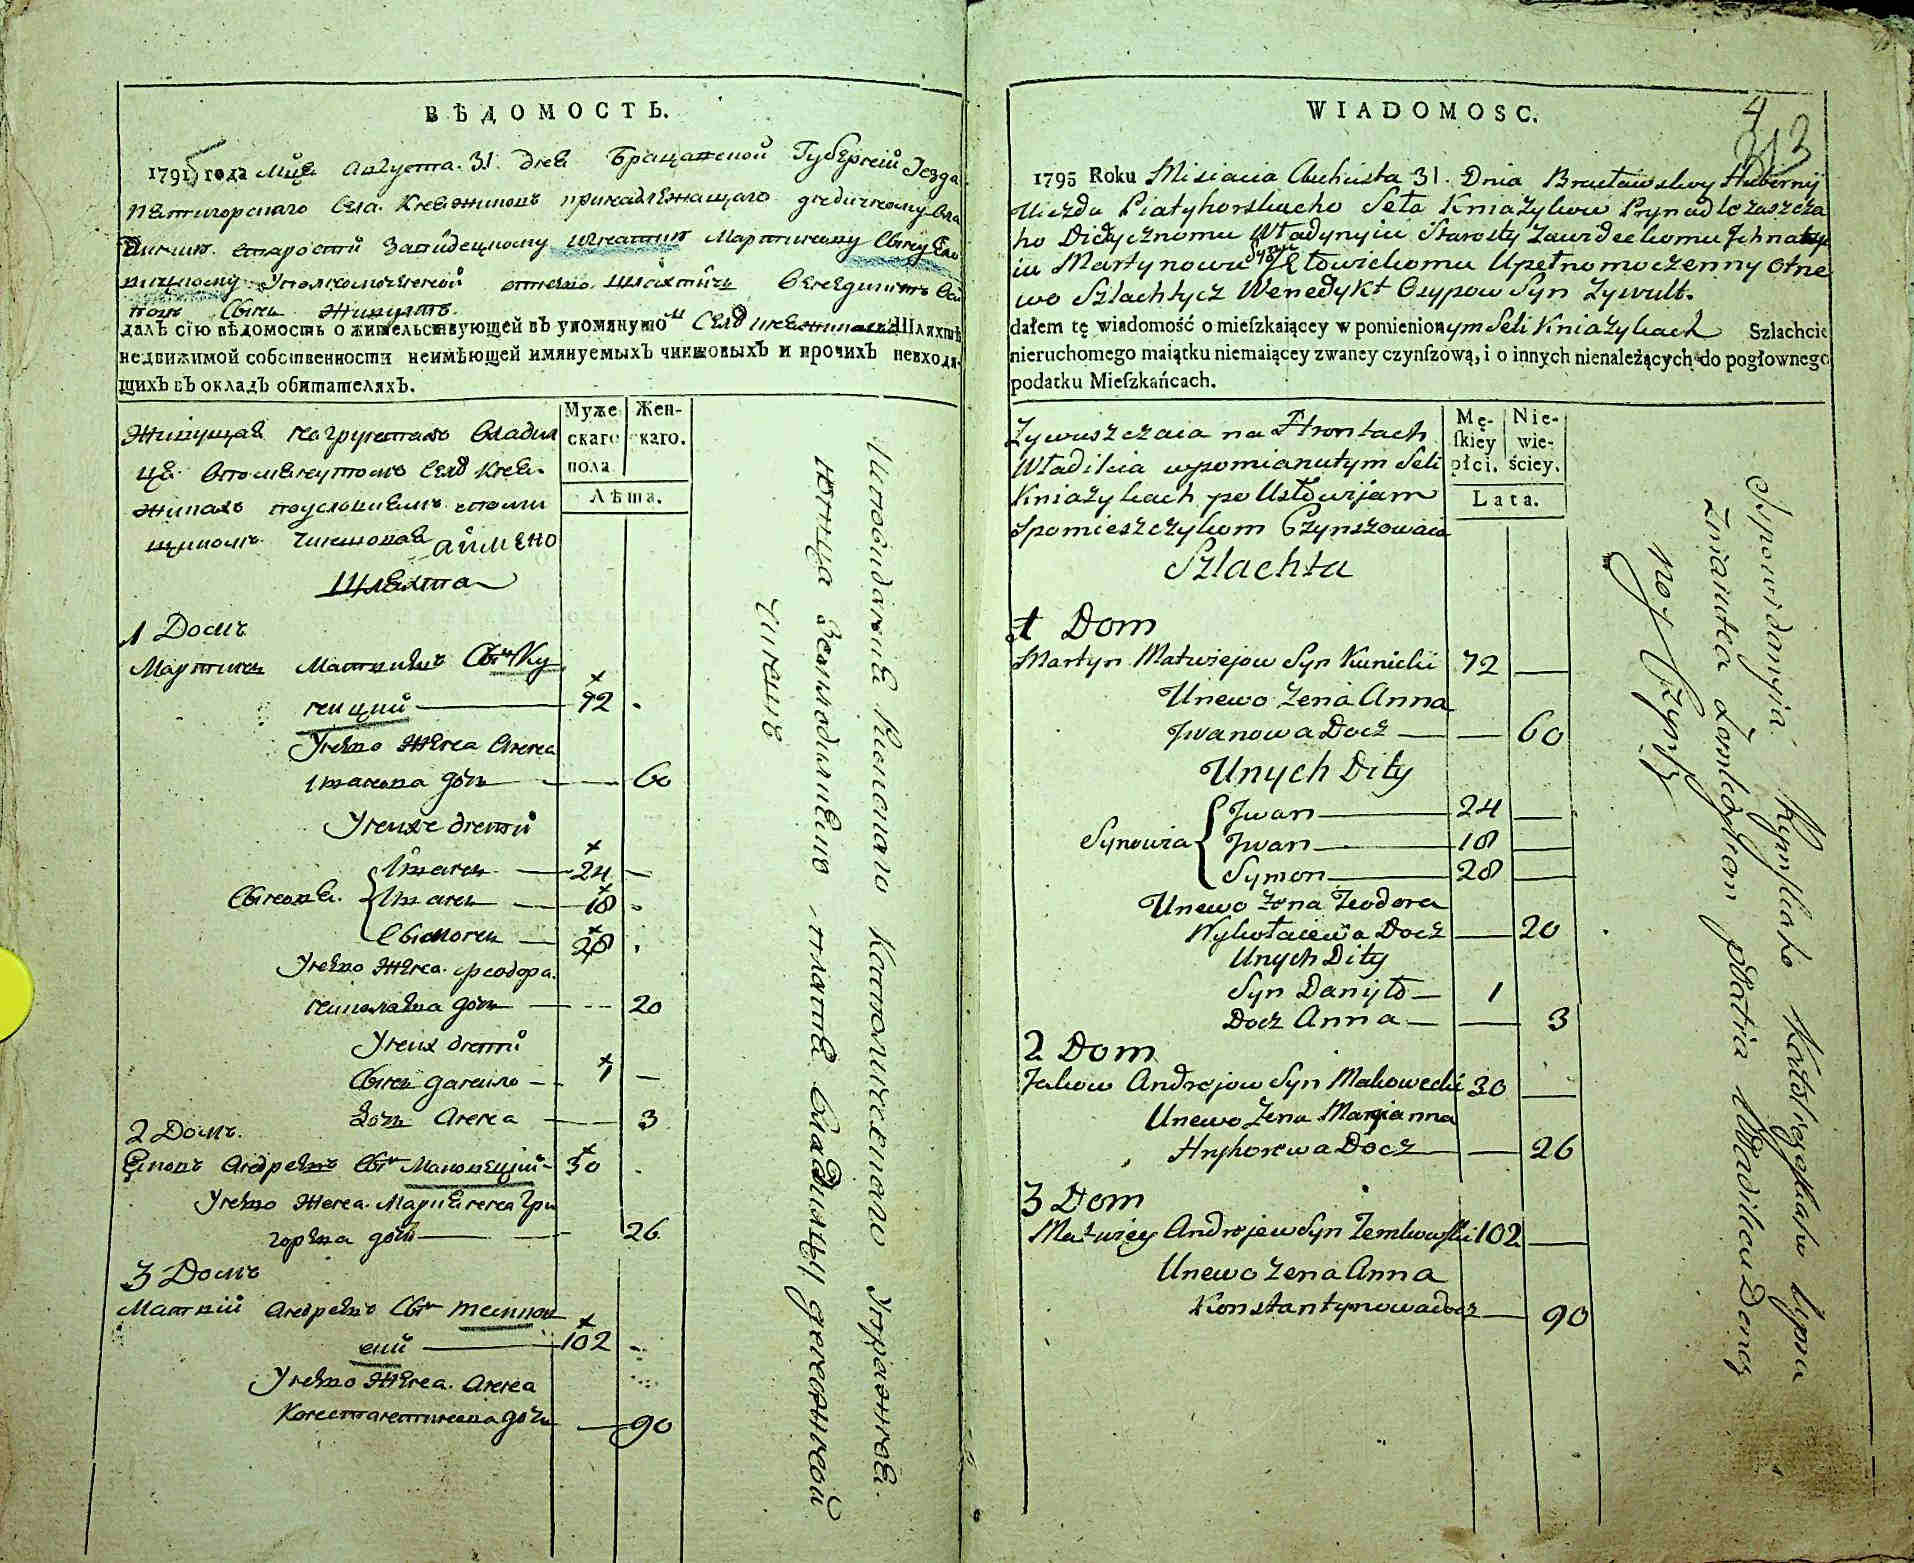 ВѢДОМОСТЬ.
1795 года Мця Августа 31. дня Брацлавской Губерній Уезда
Пятигорского Села Княжиковъ принадлежащаго дедичному Вла
старостѣ Завидецкому Игнатію Мартинову Сыну
Уполномоченной отнево шляхтичь Бенедиктъ
Сынъ
далъ сію вѣдомость о жительствующей въ упомянутом Селѣ Шляхтѣ
недвижимой собственности неимѣющей имянуемыхъ чиншовыхъ и прочихъ невходя-
щихъ въ окладъ обитателяхъ.
Живущая на грунтахъ Владил
ца вспомянутомъ Селѣ Кня-
жикахъ поусловиямъ спомѣ
щикомъ чиншовая аймено
Шляхта
Муже
скаго
пола
Жен-
скаго.
Лѣта.
1 Домъ
Мартинъ Матвиевъ Сынъ Ку
ницкий 72
Унево жена Анна
Иванова дочь 60
Унихъ дети
Сыновя Иванъ 24
Иванъ 18
Сымонъ 28
Унево жена Феодора
дочь 20
Уних дети
Сынъ Данило 1
дочь Анна 3
2 Домъ.
Яковъ Андреевъ Сынъ Маковецкий 30
Унево жена Мариянна Гри
горева дочь 26
3 Домъ
Матвий Андреевъ Сынъ Земков
ский 102
Унево жена Анна
Константинова дочь 90
Исповидания Римского Католическаго Упражнения.
Земководилнею платя владилцы денежной
чиншъ
WIADOMOSC.
4
213
1795 Roku Misiacia Auhusta 31. Dnia Bracławskoy Huberny
Uiezdu Piatyhorskacho Seła Kniażykow Prynadlezaszcza
ho Didycznomu Władynyiu Starosty Zawideckomu Jhnaty
iu Martynowu Synu Upełnomoczenny Otne
wo Szlachtycz Wenedykt Osypow Syn Zywult.
dałem tę wiadomość o mieſzkaiącey w pomienionym Seli Kniażykach Szlachcie
nieruchomego maiątku niemaiącey zwaney czynſzową, i o innych nienależących do pogłownego
podatku Mieſzkańcach.
Zywuszczaia na Hrontach
Władilcia wpomianutym Seli
Kniażykach po Usłowijam
Spomieszczykom Czynszowaia
Szlachta
Mę-
ſkiey
płci.
Nie-
wie-
ściey.
Lata.
1 Dom
Martyn Matwiejow Syn Kunicki 72
Unewo Zena Anna
Jwanowa Docz 60
Unych Dity
Synowia Jwan 24
Jwan 18
Symon 28
Unewo Zona Teodora
Mykołaiewa Docz 20
Unych Dity
Syn Danyło 1
Docz Anna 3
2 Dom
Jakow Andrejow Syn Makowecki 30
Unewo Zena Maryianna
Hryhorewa Docz 26
3 Dom
Matwiey Andrejew Syn Zemkowski 102
Unewo Zena Anna
Konstantynowa docz 90
Spowidanyia Rymskaho Katoliczeskaho
płatria Władilcu Deneż
noy Czynsz